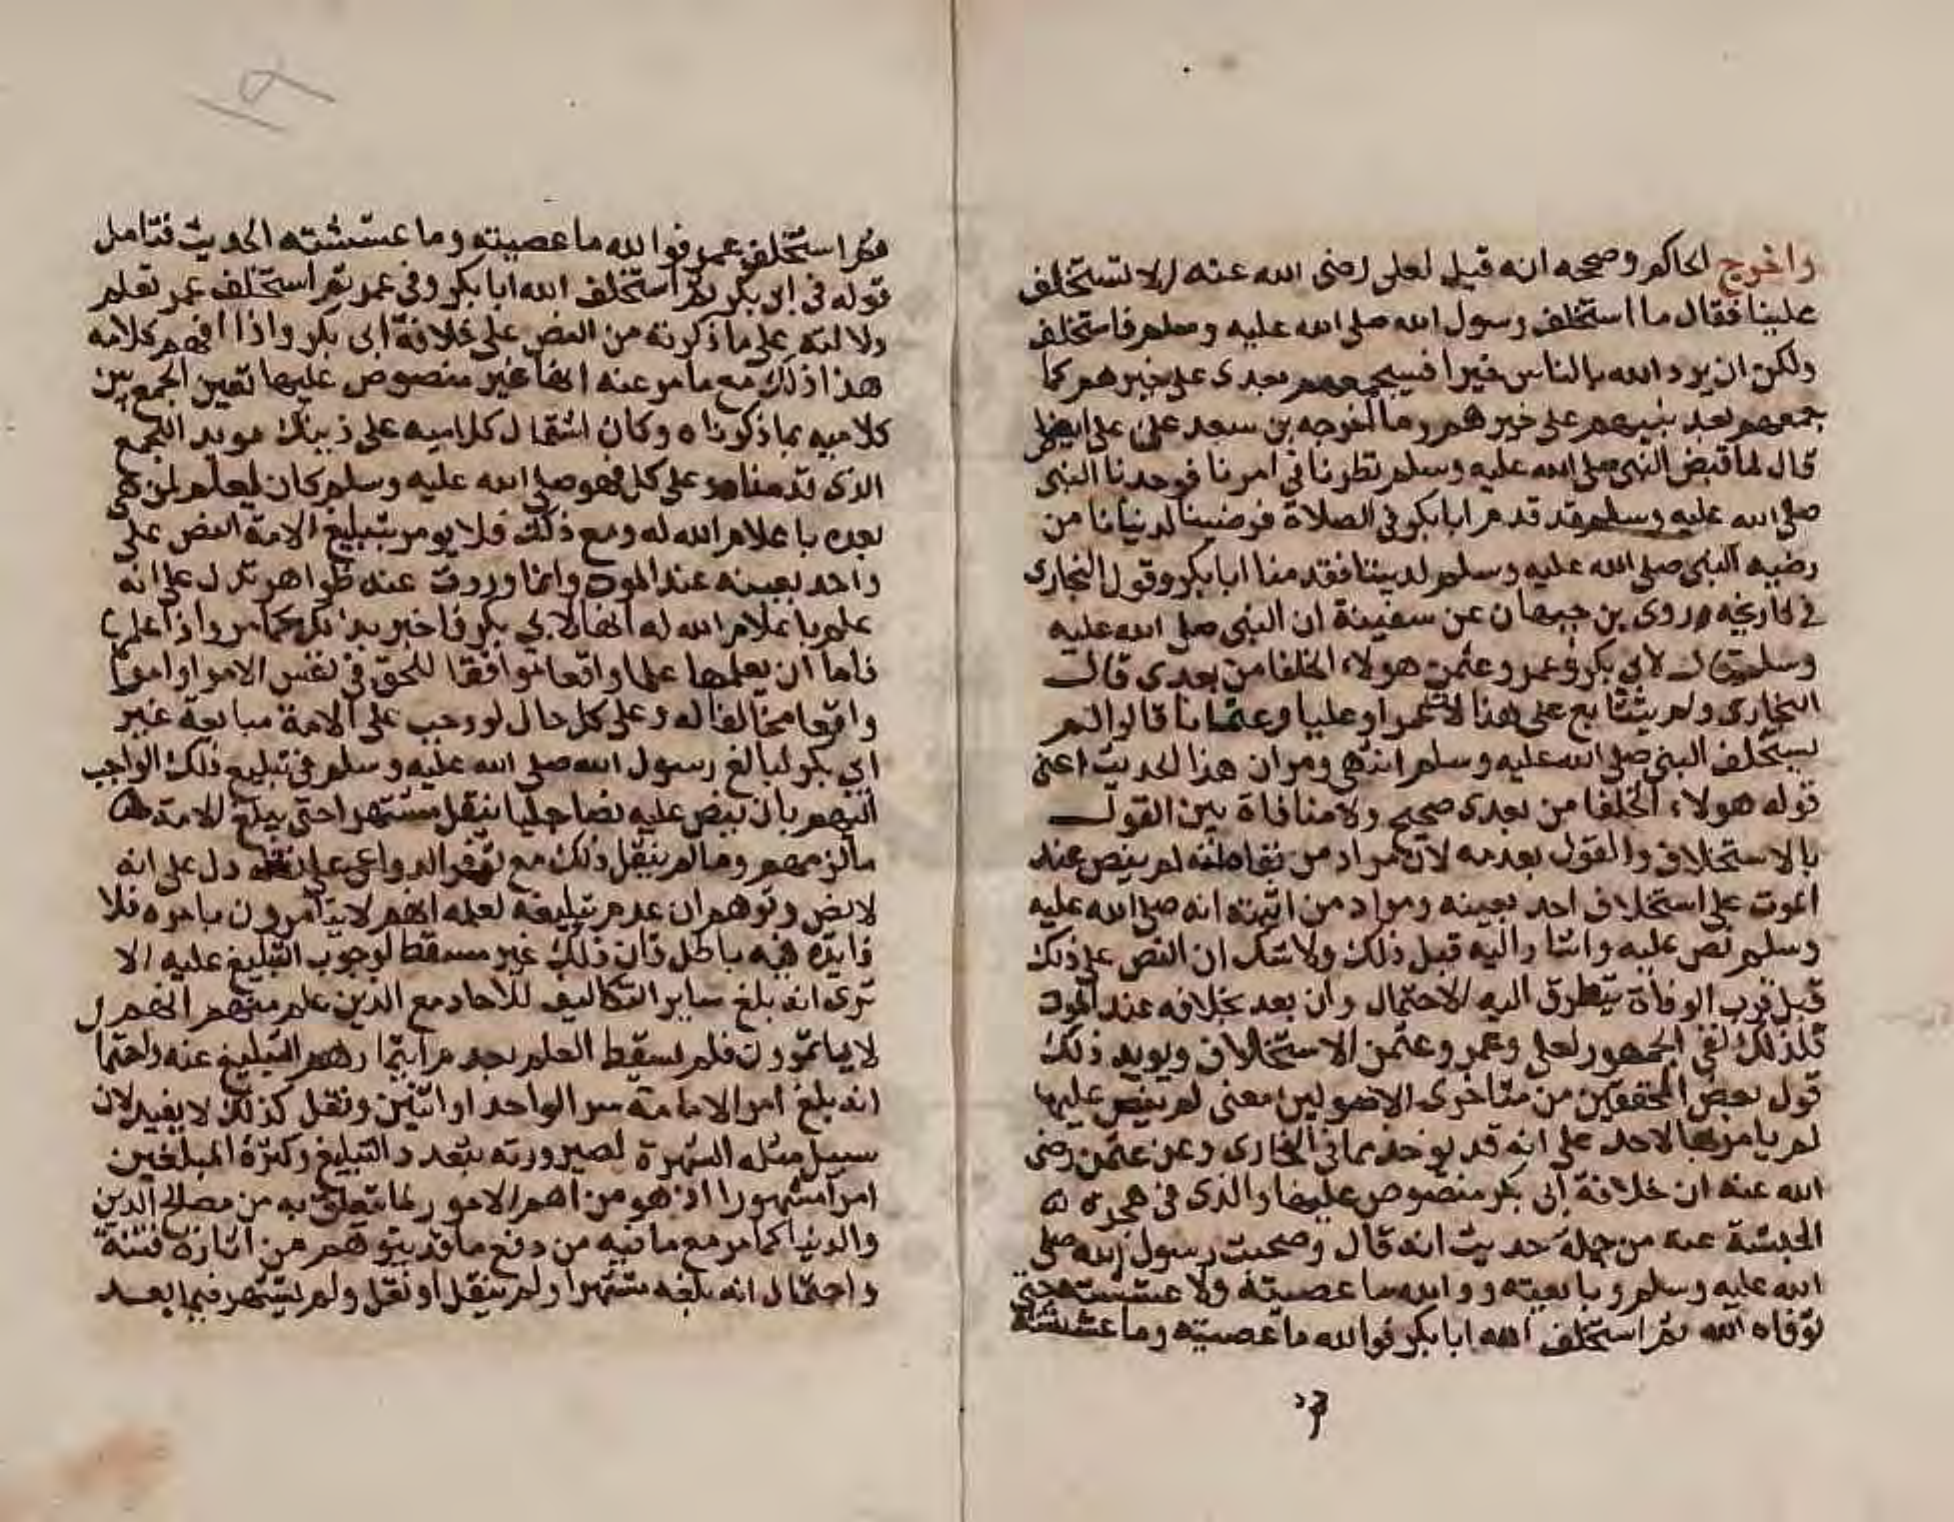 واخرج الحاكم وصححه انه قيل لعلى رضى الله عنه الا تستخلف
علينا فقال ما استخلف رسول الله صلى الله عليه وسلم فاستخلف
ولكن ان يرد الله بالناس خيرا فسيجمعهم بعدى على خيرهم كما
جمعهم بعد نبيهم على خيرهم وما اخرجه بن سعد عن على ايضا
قال لما قبض النبى صلى الله عليه وسلم نظرنا فى امرنا فوجدنا النبى
صلى الله عليه وسلم قد قدم ابا بكر فى الصلاة فرضينا لدنيانا من
رضيه النبى صلى الله عليه وسلم لديننا فقدمنا ابا بكر وقول البخارى
فى تاريخه روى بن جمهان عن سفينة ان النبى صلى الله عليه
وسلم قال لابى بكر وعمر وعثمن هولاء الخلفا من بعدى قال
البخارى ولم يتابع على هذا لان عمر وعليا وعثمانا قالوا لم
يستخلف النبى صلى الله عليه وسلم انتهى ومر ان هذا الحديث اعنى
قوله هولاء الخلفا من بعدى صحيح ولا منافاة بين القول
بالاستخلاف والقول بعدمه لان مراد من نفاه انه لم ينص عند
الموت على استخلاف احد بعينه ومراد من اثبته انه صلى الله عليه
وسلم نص عليه واشار اليه قبل ذلك ولا شك ان النص على ذلك
قبل قرب الوفاة يتطرق اليه الاحتمال وان بعد بخلافه عند الموت
فلذلك نفى الجمهور لعلى وعمر وعثمن الاستخلاف ويويد ذلك
قول بعض المحققين من متاخرى الاصوليين معنى لم ينص عليها
لم يامر بها لاحد على انه قد يوخذ مما فى البخارى وعن عثمن رضى
الله عنه ان خلافة ابى بكر منصوص عليها والذى فى هجرة
الحبشة عنه من جملة حديث انه قال وصحبت رسول الله صلى
الله عليه وسلم وبايعته ووالله ما عصيته ولا غششته حتى
توفاه الله ثم استخلف الله ابا بكر فوالله ما عصيته وما غششته
ثم
ثم استخلف عمر فوالله ما عصيته وما غششته الحديث فتامل
قوله فى ابى بكر ثم استخلف الله ابا بكر وفى عمر ثم استخلف عمر تعلم
دلالته على ما ذكرته من النص على خلافة ابى بكر واذا افهم كلامه
هذا ذلك مع ما مر عنه انها غير منصوص عليها تعين الجمع بين
كلاميه بما ذكرناه وكان اشتمال كلاميه على ذينك مويد الجمع
الذى قدمناه وعلى كل فهو صلى الله عليه وسلم كان يعلم لمن هى
بعده باعلام الله له ومع ذلك فلا يومر بتبليغ الامة النص على
واحد بعينه عند الموت وانما وردت عنه ظواهر تدل على انه
علم باعلام الله له انها لابى بكر فاخبر بذلك كما مر واذا علمها
فاما ان يعلمها علما واقعا موافقا للحق فى نفس الامر او امرا
واقعا مخالفا له وعلى كل حال لو وجب على الامة مبايعة غير
ابى بكر لبالغ رسول الله صلى الله عليه وسلم فى تبليغ ذلك الواجب
اليهم بان ينص عليه نصا جليا ينقل مشتهرا حتى يبلغ الامة
مالزمهم وما لم ينقل ذلك مع توفر الدواعى على نقله دل على انه
لا نص وتوهم ان عدم تبليغه لعلمه انهم لا يتامرون بامره فلا
فايدة فيه باطل فان ذلك غير مسقط لوجوب التبليغ عليه الا
ترى انه بلغ ساير التكاليف للاحاد مع الذين علم منهم انهم
لا ياتمرون فلم يسقط العلم بعدم ايتمارهم التبليغ عنه واحتما
انه بلغ امر الامامة سر الواحد او اثنين ونقل كذلك لا يفيد لان
سبيل مثله الشهرة لصيرورته بتعدد التبليغ وكثرة المبلغين
امرا مشهورا اذ هو من اهم الامور لما يتعلق به من مصالح الدين
والدنيا كما مر مع ما فيه من دفع ما قد يتوهم من اثارة فتنة
واحتمال انه بلغه مشتهرا ولم ينقل او نقل ولم يشتهر فيما بعد